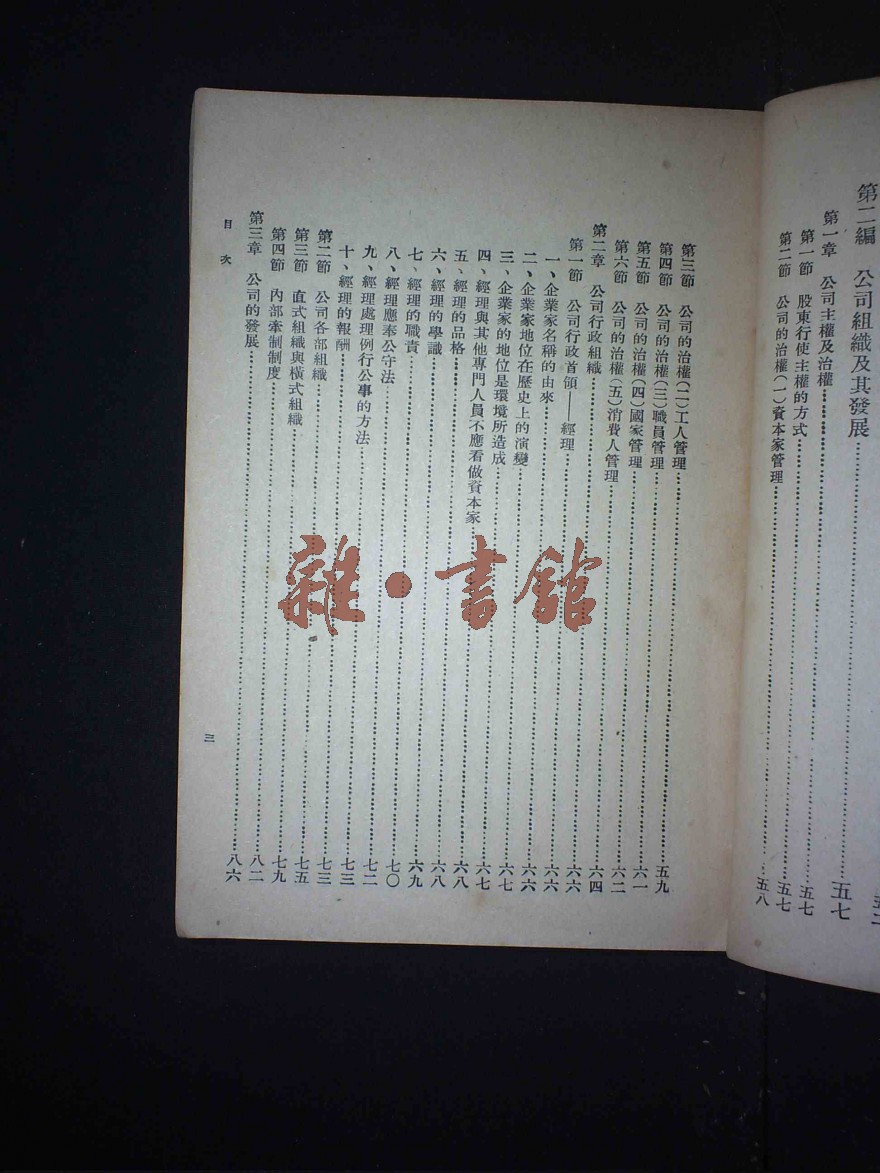 第二編　公司組織及其發展……五七
第一章　公司主權及治權……五七
第一節　股東行使主權的方式……五七
第二節　公司的治權(一)資本家管理……五八
第三節　公司的治權(二)工人管理……五九
第四節　公司的治權(三)職員管理……六一
第五節　公司的治權(四)國家管理……六二
第六節　公司的治權(五)消費人管理……六四
第二章　公司行政組織……六六
第一節　公司行政首領——經理……六六
一、企業家名稱的由來……六六
二、企業家地位在歷史上的演變……六七
三、企業家的地位是環境所造成……六七
四、經理與其他專門人員不應看做資本家……六八
五、經理的品格……六八
六、經理的學識……六九
七、經理的職責……七〇
八、經理應奉公守法……七二
九、經理處理例行公事的方法……七三
十、經理的報酬……七三
第二節　公司各部組織……七五
第三節　直式組織與橫式組織……七九
第四節　內部牽制制度……八二
第三章　公司的發展……八六
目次
三
雜·書館